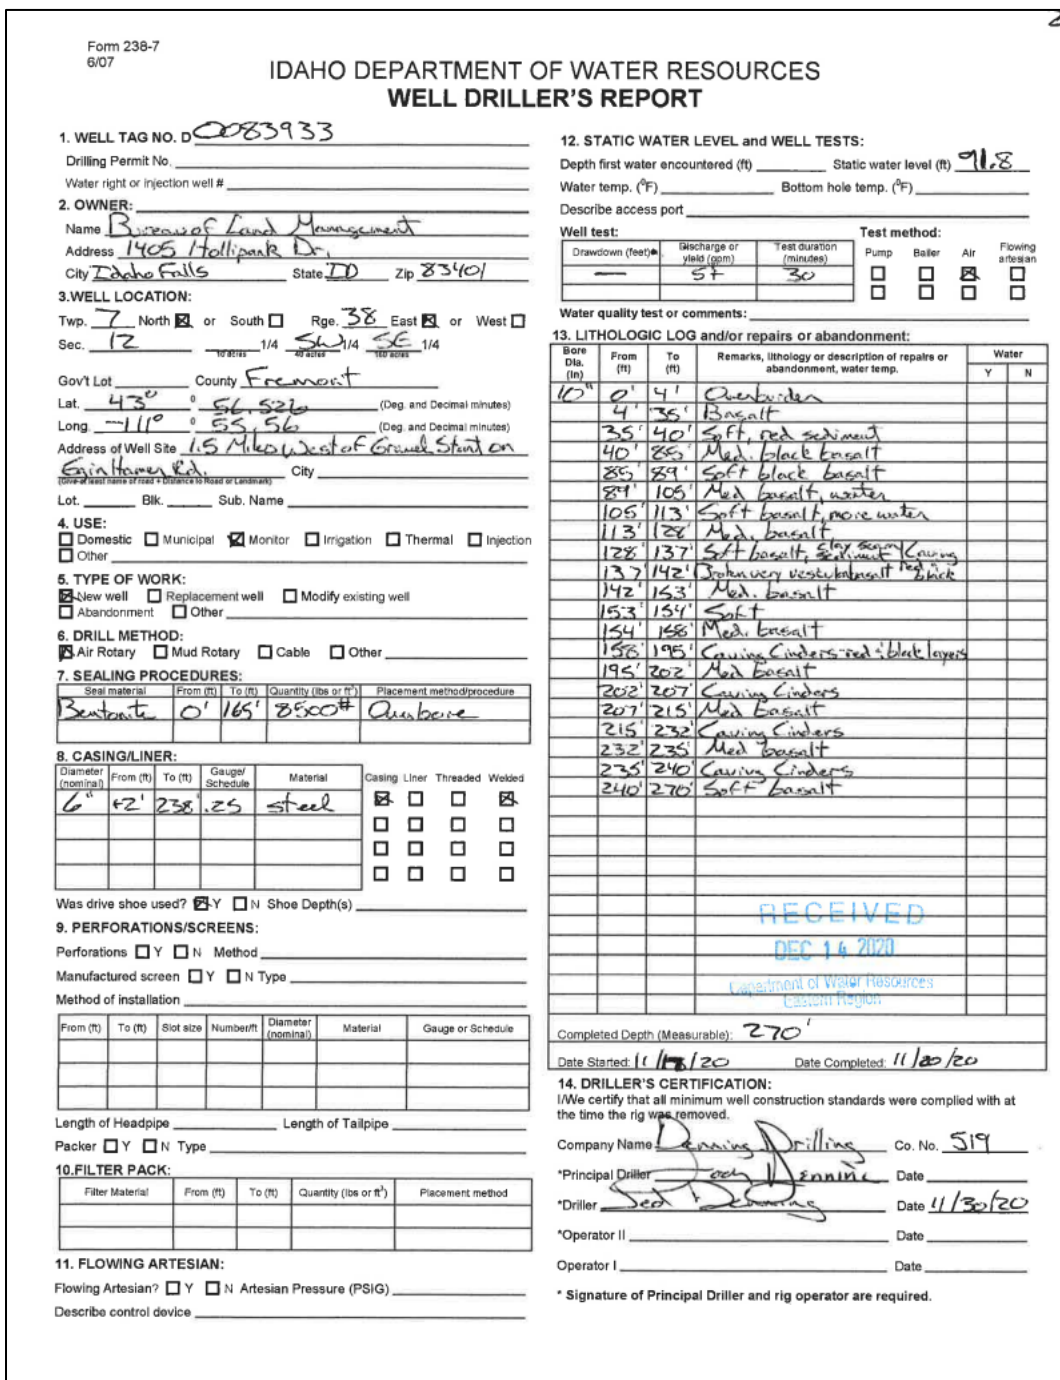 Form 238-7
6/07
IDAHO DEPARTMENT OF WATER RESOURCES
WELL DRILLER'S REPORT
1. WELL TAG NO. D 0083933
Drilling Permit No.
Water right or injection well #
2. OWNER:
Name Bureau of Land Management
Address 1405 Hollipark Dr.
City Idaho Falls State ID Zip 83401
3.WELL LOCATION:
Twp. 7 North ☒ or South ☐ Rge. 38 East ☒ or West ☐
Sec. 12 1/4 SW 1/4 SE 1/4
10 acres 40 acres 160 acres
Gov't Lot County Fremont
Lat. 43° ° 56.526 (Deg. and Decimal minutes)
Long. -111° ° 55.56 (Deg. and Decimal minutes)
Address of Well Site 1.5 Miles West of Gravel Start on
Egin Hamer Rd. City
(Give at least name of road + Distance to Road or Landmark)
Lot. Blk. Sub. Name
4. USE:
☐ Domestic ☐ Municipal ☒ Monitor ☐ Irrigation ☐ Thermal ☐ Injection
☐ Other
5. TYPE OF WORK:
☒ New well ☐ Replacement well ☐ Modify existing well
☐ Abandonment ☐ Other
6. DRILL METHOD:
☒ Air Rotary ☐ Mud Rotary ☐ Cable ☐ Other
7. SEALING PROCEDURES:
Seal material From (ft) To (ft) Quantity (lbs or ft³) Placement method/procedure
Bentonite 0' 165' 8500# Overbore
8. CASING/LINER:
Diameter (nominal) From (ft) To (ft) Gauge/ Schedule Material Casing Liner Threaded Welded
6" +2' 238' .25 steel ☒ ☐ ☐ ☒
☐ ☐ ☐ ☐
☐ ☐ ☐ ☐
☐ ☐ ☐ ☐
Was drive shoe used? ☒ Y ☐ N Shoe Depth(s)
9. PERFORATIONS/SCREENS:
Perforations ☐ Y ☐ N Method
Manufactured screen ☐ Y ☐ N Type
Method of installation
From (ft) To (ft) Slot size Number/ft Diameter (nominal) Material Gauge or Schedule
Length of Headpipe Length of Tailpipe
Packer ☐ Y ☐ N Type
10.FILTER PACK:
Filter Material From (ft) To (ft) Quantity (lbs or ft³) Placement method
11. FLOWING ARTESIAN:
Flowing Artesian? ☐ Y ☐ N Artesian Pressure (PSIG)
Describe control device
12. STATIC WATER LEVEL and WELL TESTS:
Depth first water encountered (ft) Static water level (ft) 91.8
Water temp. (°F) Bottom hole temp. (°F)
Describe access port
Well test: Test method:
Drawdown (feet) Discharge or yield (gpm) Test duration (minutes) Pump Bailer Air Flowing artesian
— 5+ 30 ☐ ☐ ☒ ☐
☐ ☐ ☐ ☐
Water quality test or comments:
13. LITHOLOGIC LOG and/or repairs or abandonment:
Bore Dia. (in) From (ft) To (ft) Remarks, lithology or description of repairs or abandonment, water temp. Water Y N
10" 0' 4' Overburden
4' 35' Basalt
35' 40' Soft, red sediment
40' 85' Med. black basalt
85' 89' Soft black basalt
89' 105' Med basalt, water
105' 113' Soft basalt, more water
113' 128' Med. basalt
128' 137' Soft basalt, clay seam/ sediment Caving
137' 142' Broken very basalt red black
142' 153' Med. basalt
153' 154' Soft
154' 158' Med. basalt
158' 195' Caving Cinders-red & black layers
195' 202' Med basalt
202' 207' Caving Cinders
207' 215' Med basalt
215' 232' Caving Cinders
232' 235' Med basalt
235' 240' Caving Cinders
240' 270' Soft basalt
RECEIVED
DEC 14 2020
Department of Water Resources
Eastern Region
Completed Depth (Measurable): 270'
Date Started: 11/ /20 Date Completed: 11/20/20
14. DRILLER'S CERTIFICATION:
I/We certify that all minimum well construction standards were complied with at
the time the rig was removed.
Company Name Denning Drilling Co. No. 519
*Principal Driller Denning Date
*Driller Denning Date 11/30/20
*Operator II Date
Operator I Date
* Signature of Principal Driller and rig operator are required.